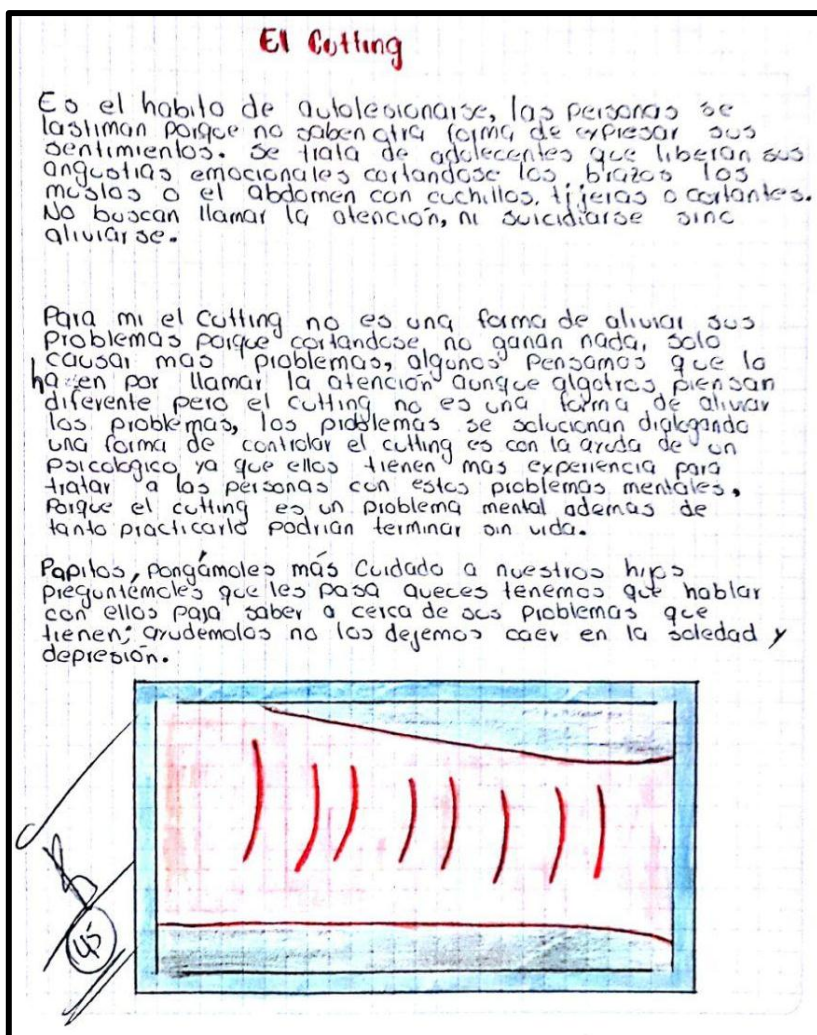 El Cutting
Es el habito de autolesionarse, las personas se
lastiman porque no saben otra forma de expresar sus
sentimientos. Se trata de adolecentes que liberan sus
angustias emocionales cortandose los brazos los
muslos o el abdomen con cuchillos, tijeras o cortantes.
No buscan llamar la atención, ni suicidiarse sino
aliviarse.
Para mi el cutting no es una forma de aliviar sus
problemas porque cortandose no ganan nada, solo
causar mas problemas, algunos pensamos que lo
hacen por llamar la atención aunque algotros piensan
diferente pero el cutting no es una forma de aliviar
los problemas, los problemas se solucionan dialogando
una forma de controlar el cutting es con la ayuda de un
psicologico ya que ellos tienen mas experiencia para
tratar a las personas con estos problemas mentales,
Porque el cutting es un problema mental ademas de
tanto practicarlo podrian terminar sin vida.
Papitos, pongámoles más cuidado a nuestros hijos
preguntemoles que les pasa aveces tenemos que hablar
con ellos para saber a cerca de sus problemas que
tienen; ayudemolos no los dejemos caer en la soledad y
depresión.
45